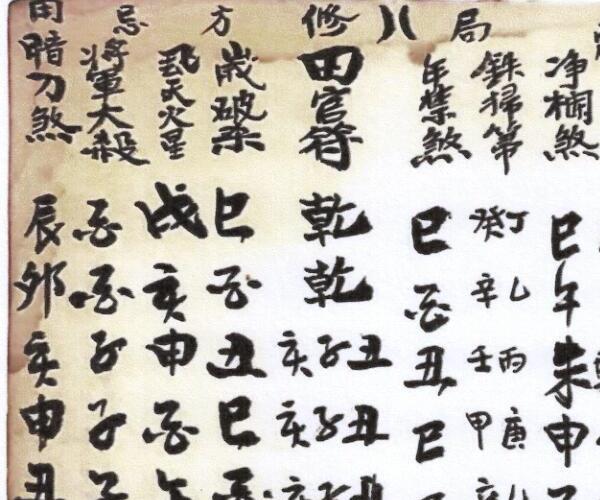 局
修方忌
净欄煞 巳 午 未 申
鉄掃箒 丁癸 乙辛 丙壬 庚甲
年禁煞 巳 酉 丑 巳
田官符 乾 乾 丑子亥 丑子亥 丑子亥
歲破杀 巳 酉 丑 巳 酉
飛天火星 戌 亥 申 酉 午
將軍大殺 酉 酉 子 子 子
田暗刀煞 辰 卯 亥 申 丑